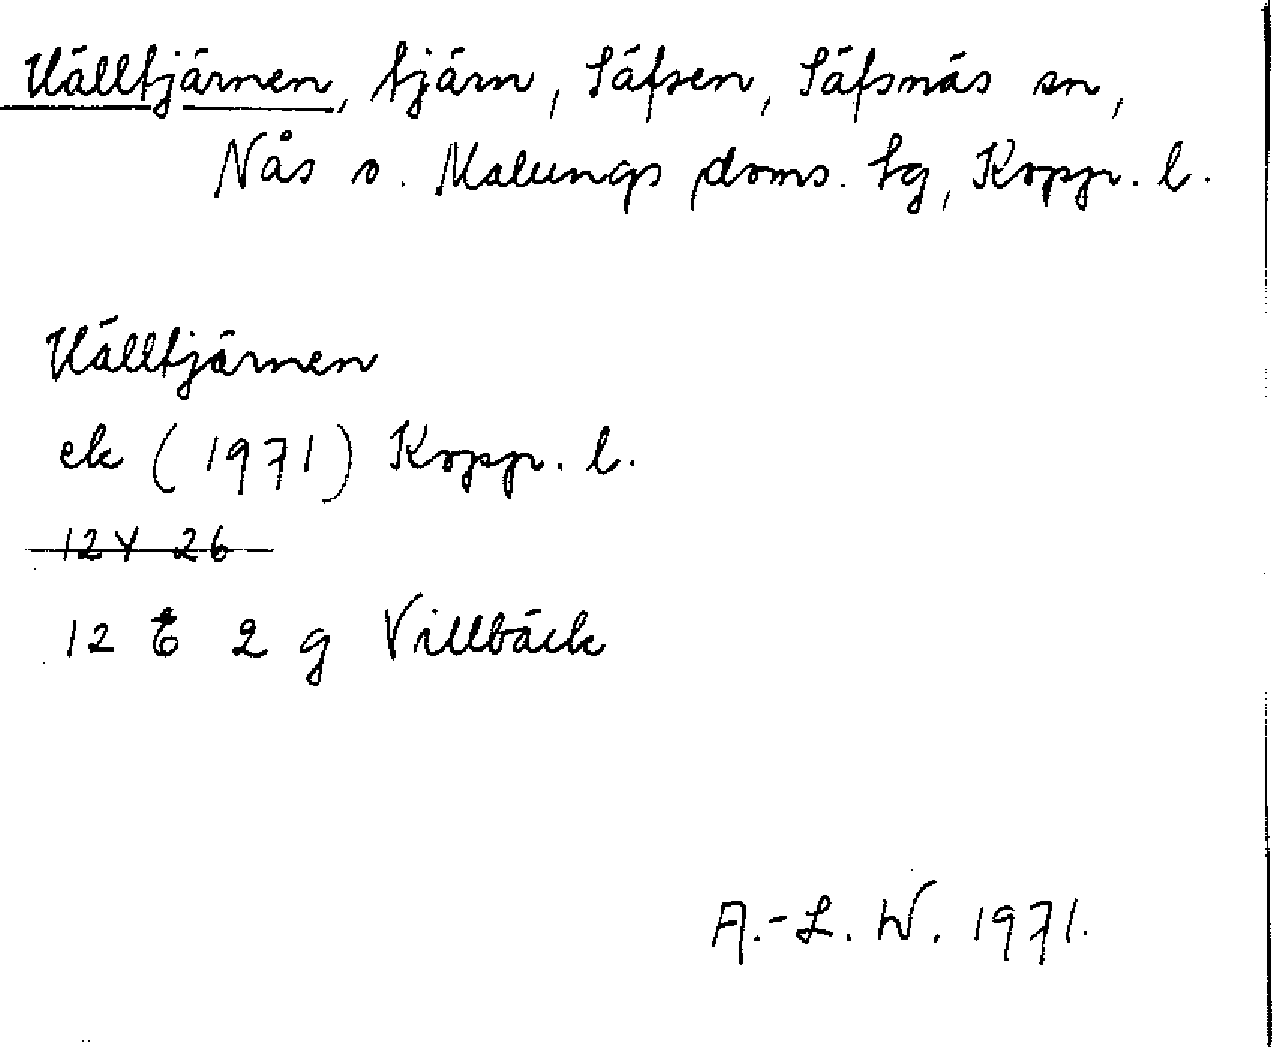 Källtjärnen, tjärn, Säfsen, Säfsnäs sn,
Nås o. Malungs doms. tg, Kopp. l.
Källtjärnen
ek (1971) Kopp. l.
12 E 2 g Villbäck
A.-L. W. 1971.